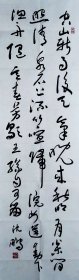 空山新雨後天氣晚來秋明月松間
照清泉石上流竹喧歸浣女蓮動下
漁舟隨意春芳歇王孫自可留 沈鵬